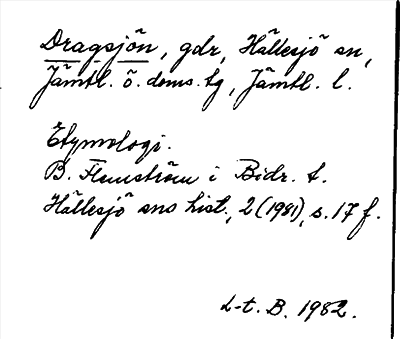 Dragsjön, gdr, Hällesjö sn,
Jämtl. ö. doms. tg, Jämtl. l.
Etymologi.
B. Flemström i Bidr. t.
Hällesjö sns hist., 2 (1981), s. 17 f.
L-t. B. 1982.